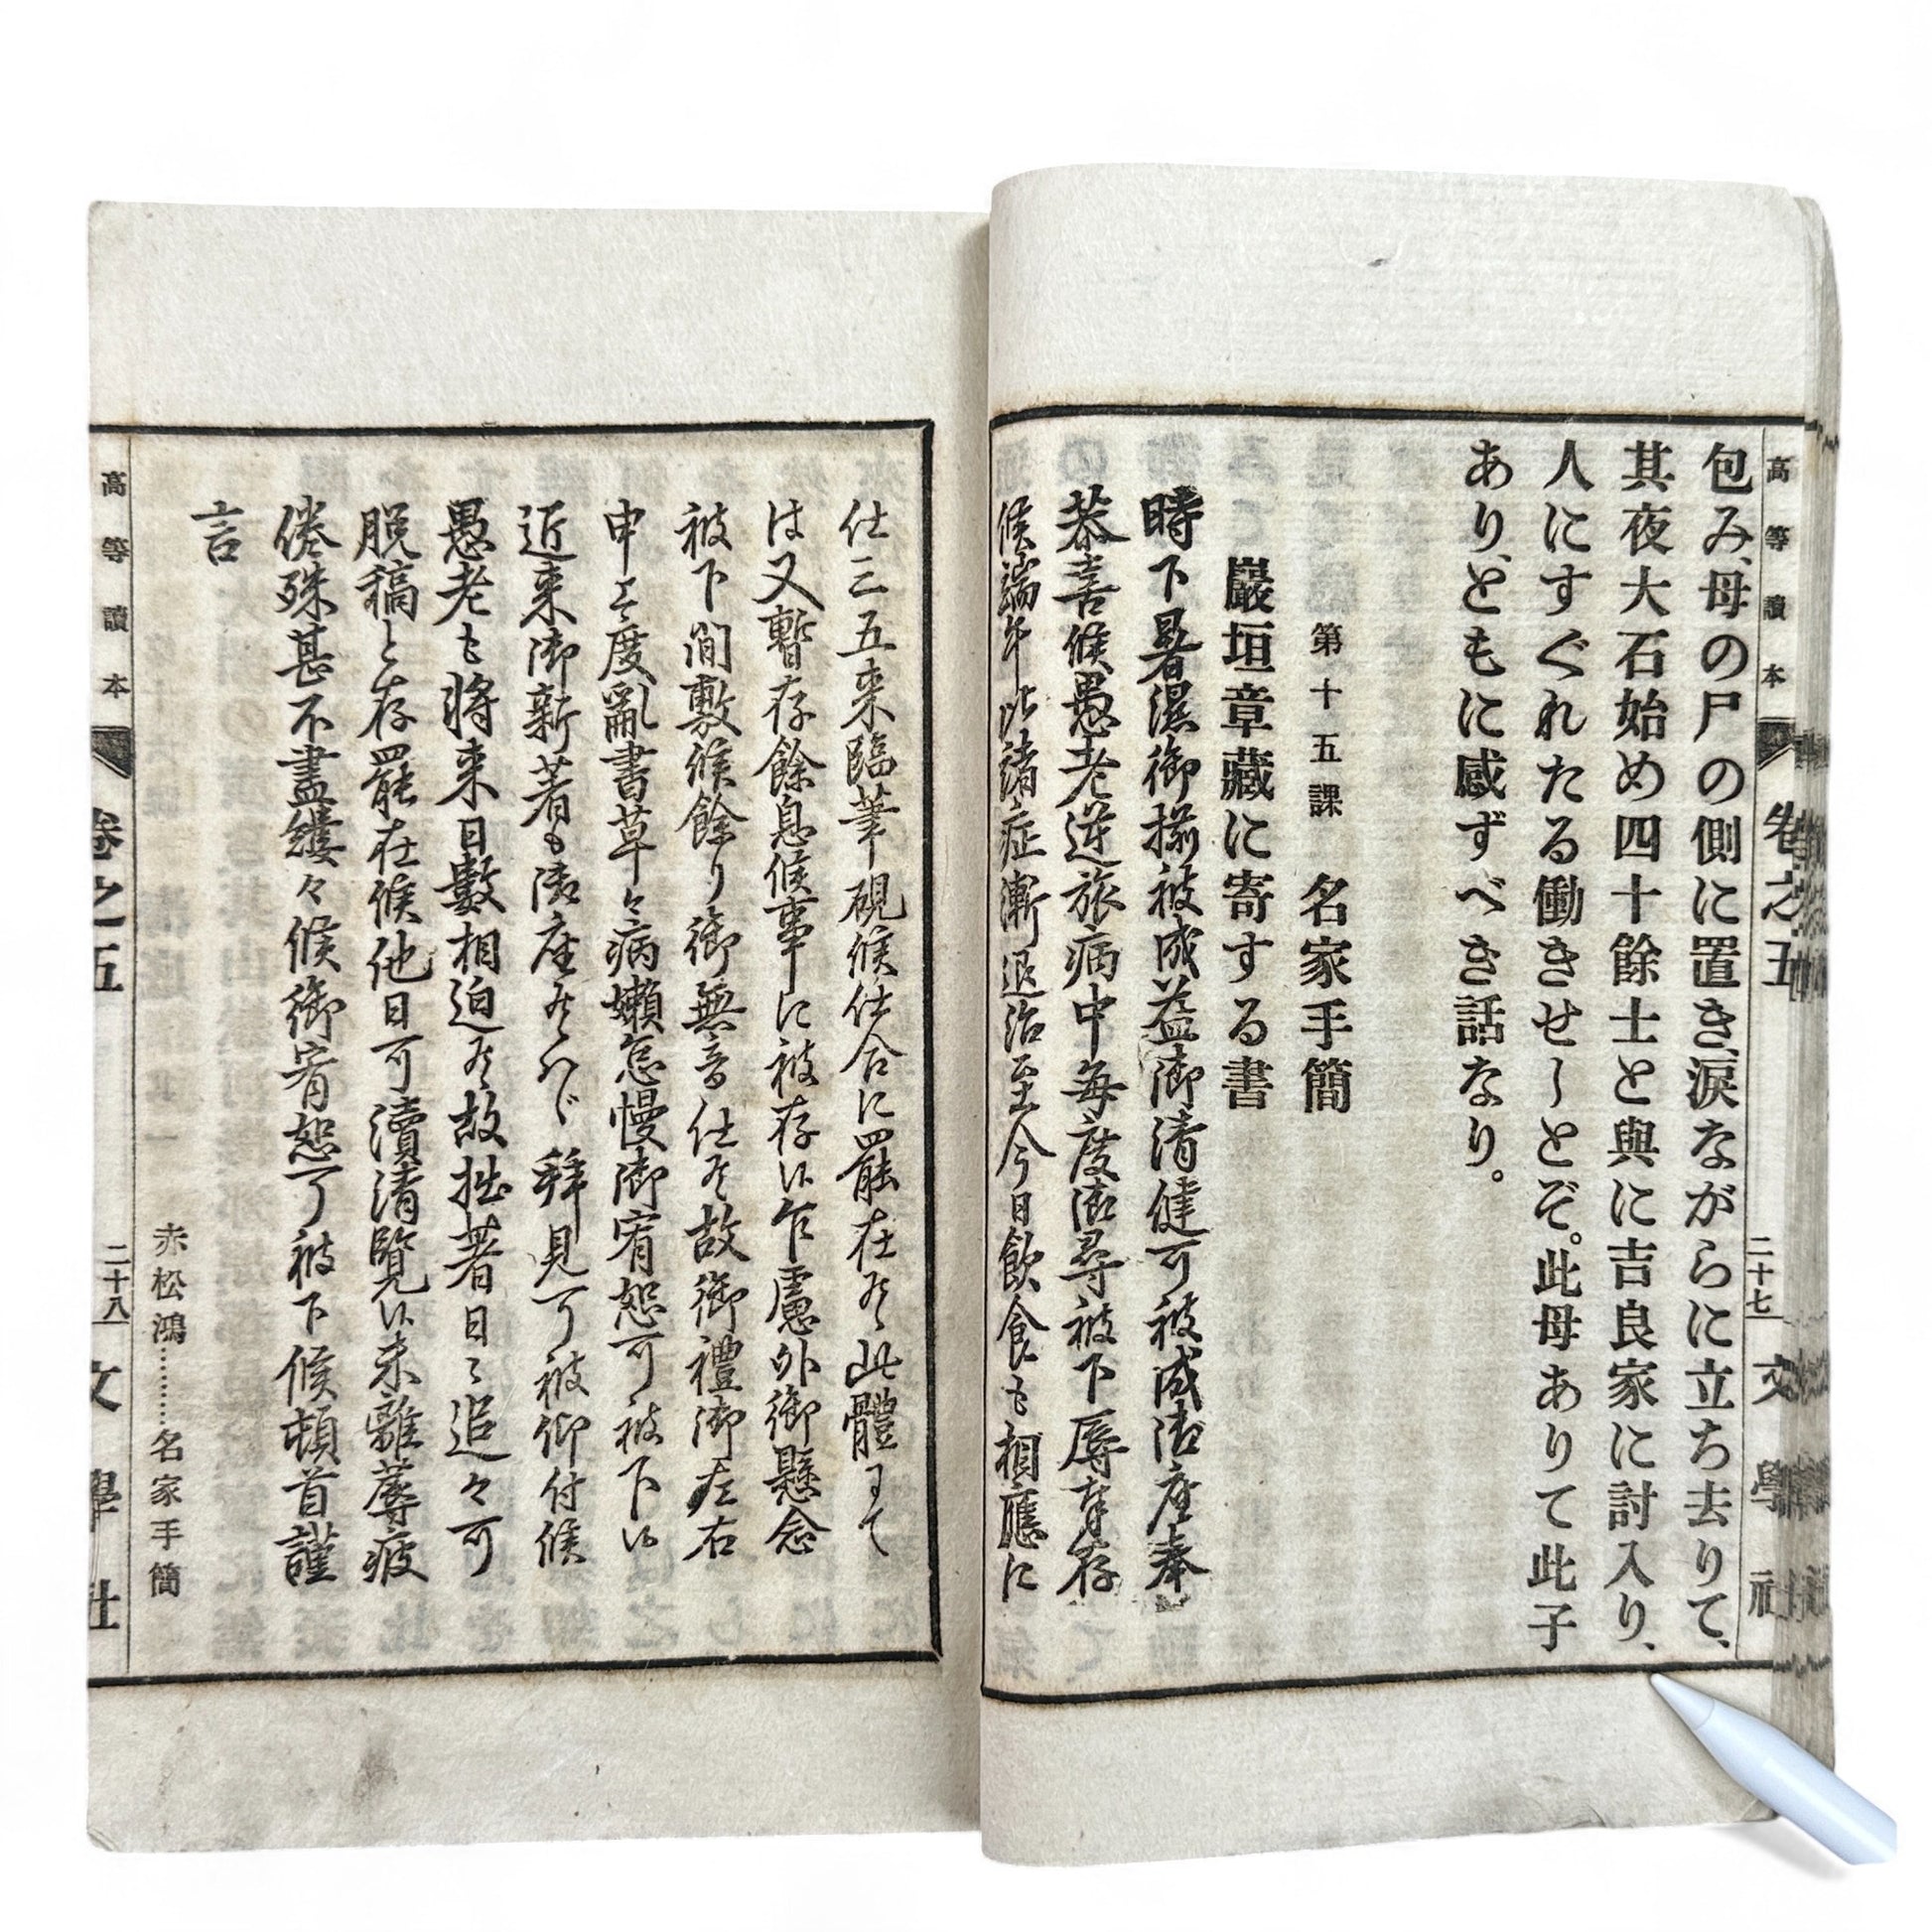 高等讀本 卷之五 二十七 文學社
包み、母の尸の側に置き、涙ながらに立ち去りて、
其夜大石始め四十餘士と與に吉良家に討入り、
人にすぐれたる働きせしとぞ。此母ありて此子
あり、ともに感ずべき話なり。
第十五課 名家手簡
巖垣章藏に寄する書
時下暑濕御揃被成益御清健可被成御座奉
恭喜候愚老逆旅病中每度御尋被下辱奉存
候端午比諸症漸退治至今日飲食も相應に
仕三五來臨筆硯候仕合に罷在候此體にて
は又暫存餘息候事に被存候乍慮外御懸念
被下間敷候餘り御無音仕候故御禮御左右
申上度亂書草々病懶怠慢御宥恕可被下候
近來御新著も御座候ハゞ拜見可被仰付候
愚老も將來日數相迫候故拙著日々追々可
脱稿と存罷在候他日可瀆清覽候未離蓐疲
倦殊甚不盡縷々候御宥恕可被下候頓首謹
言
赤松鴻………名家手簡
高等讀本 卷之五 二十八 文學社